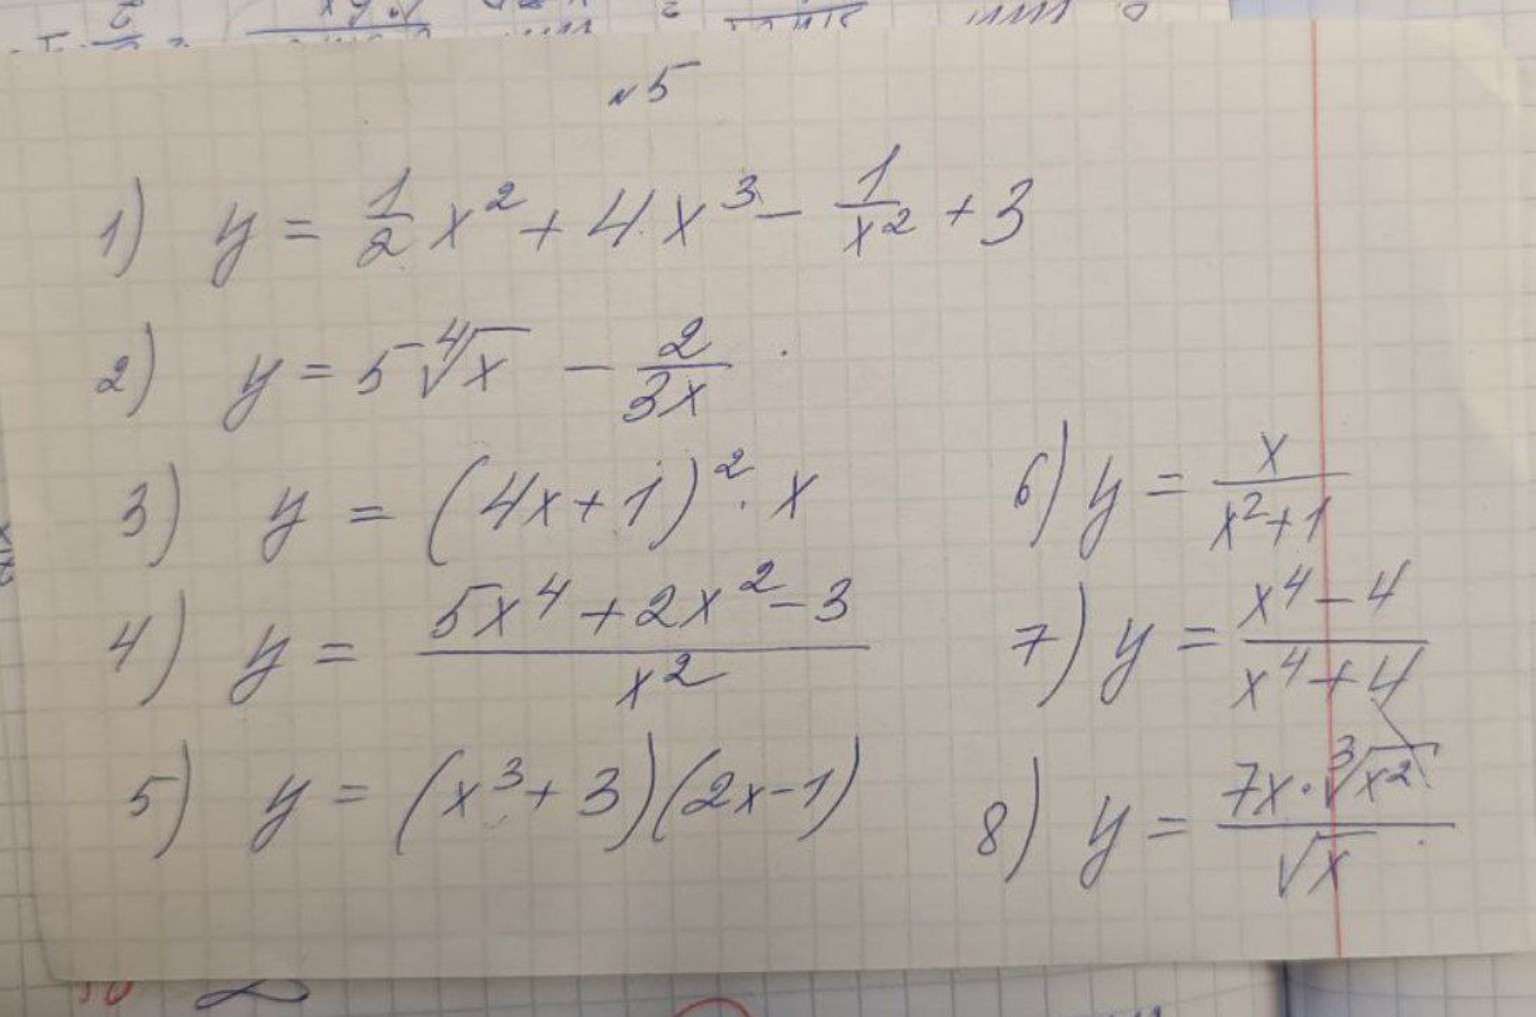 №5
1) y = 1/2 x² + 4x³ - 1/x² + 3
2) y = 5 ⁴√x - 2/(3x)
3) y = (4x+1)² · x
4) y = (5x⁴ + 2x² - 3)/x²
5) y = (x³ + 3)(2x - 1)
6) y = x/(x²+1)
7) y = (x⁴ - 4)/(x⁴ + 4)
8) y = (7x · ³√x²)/√x